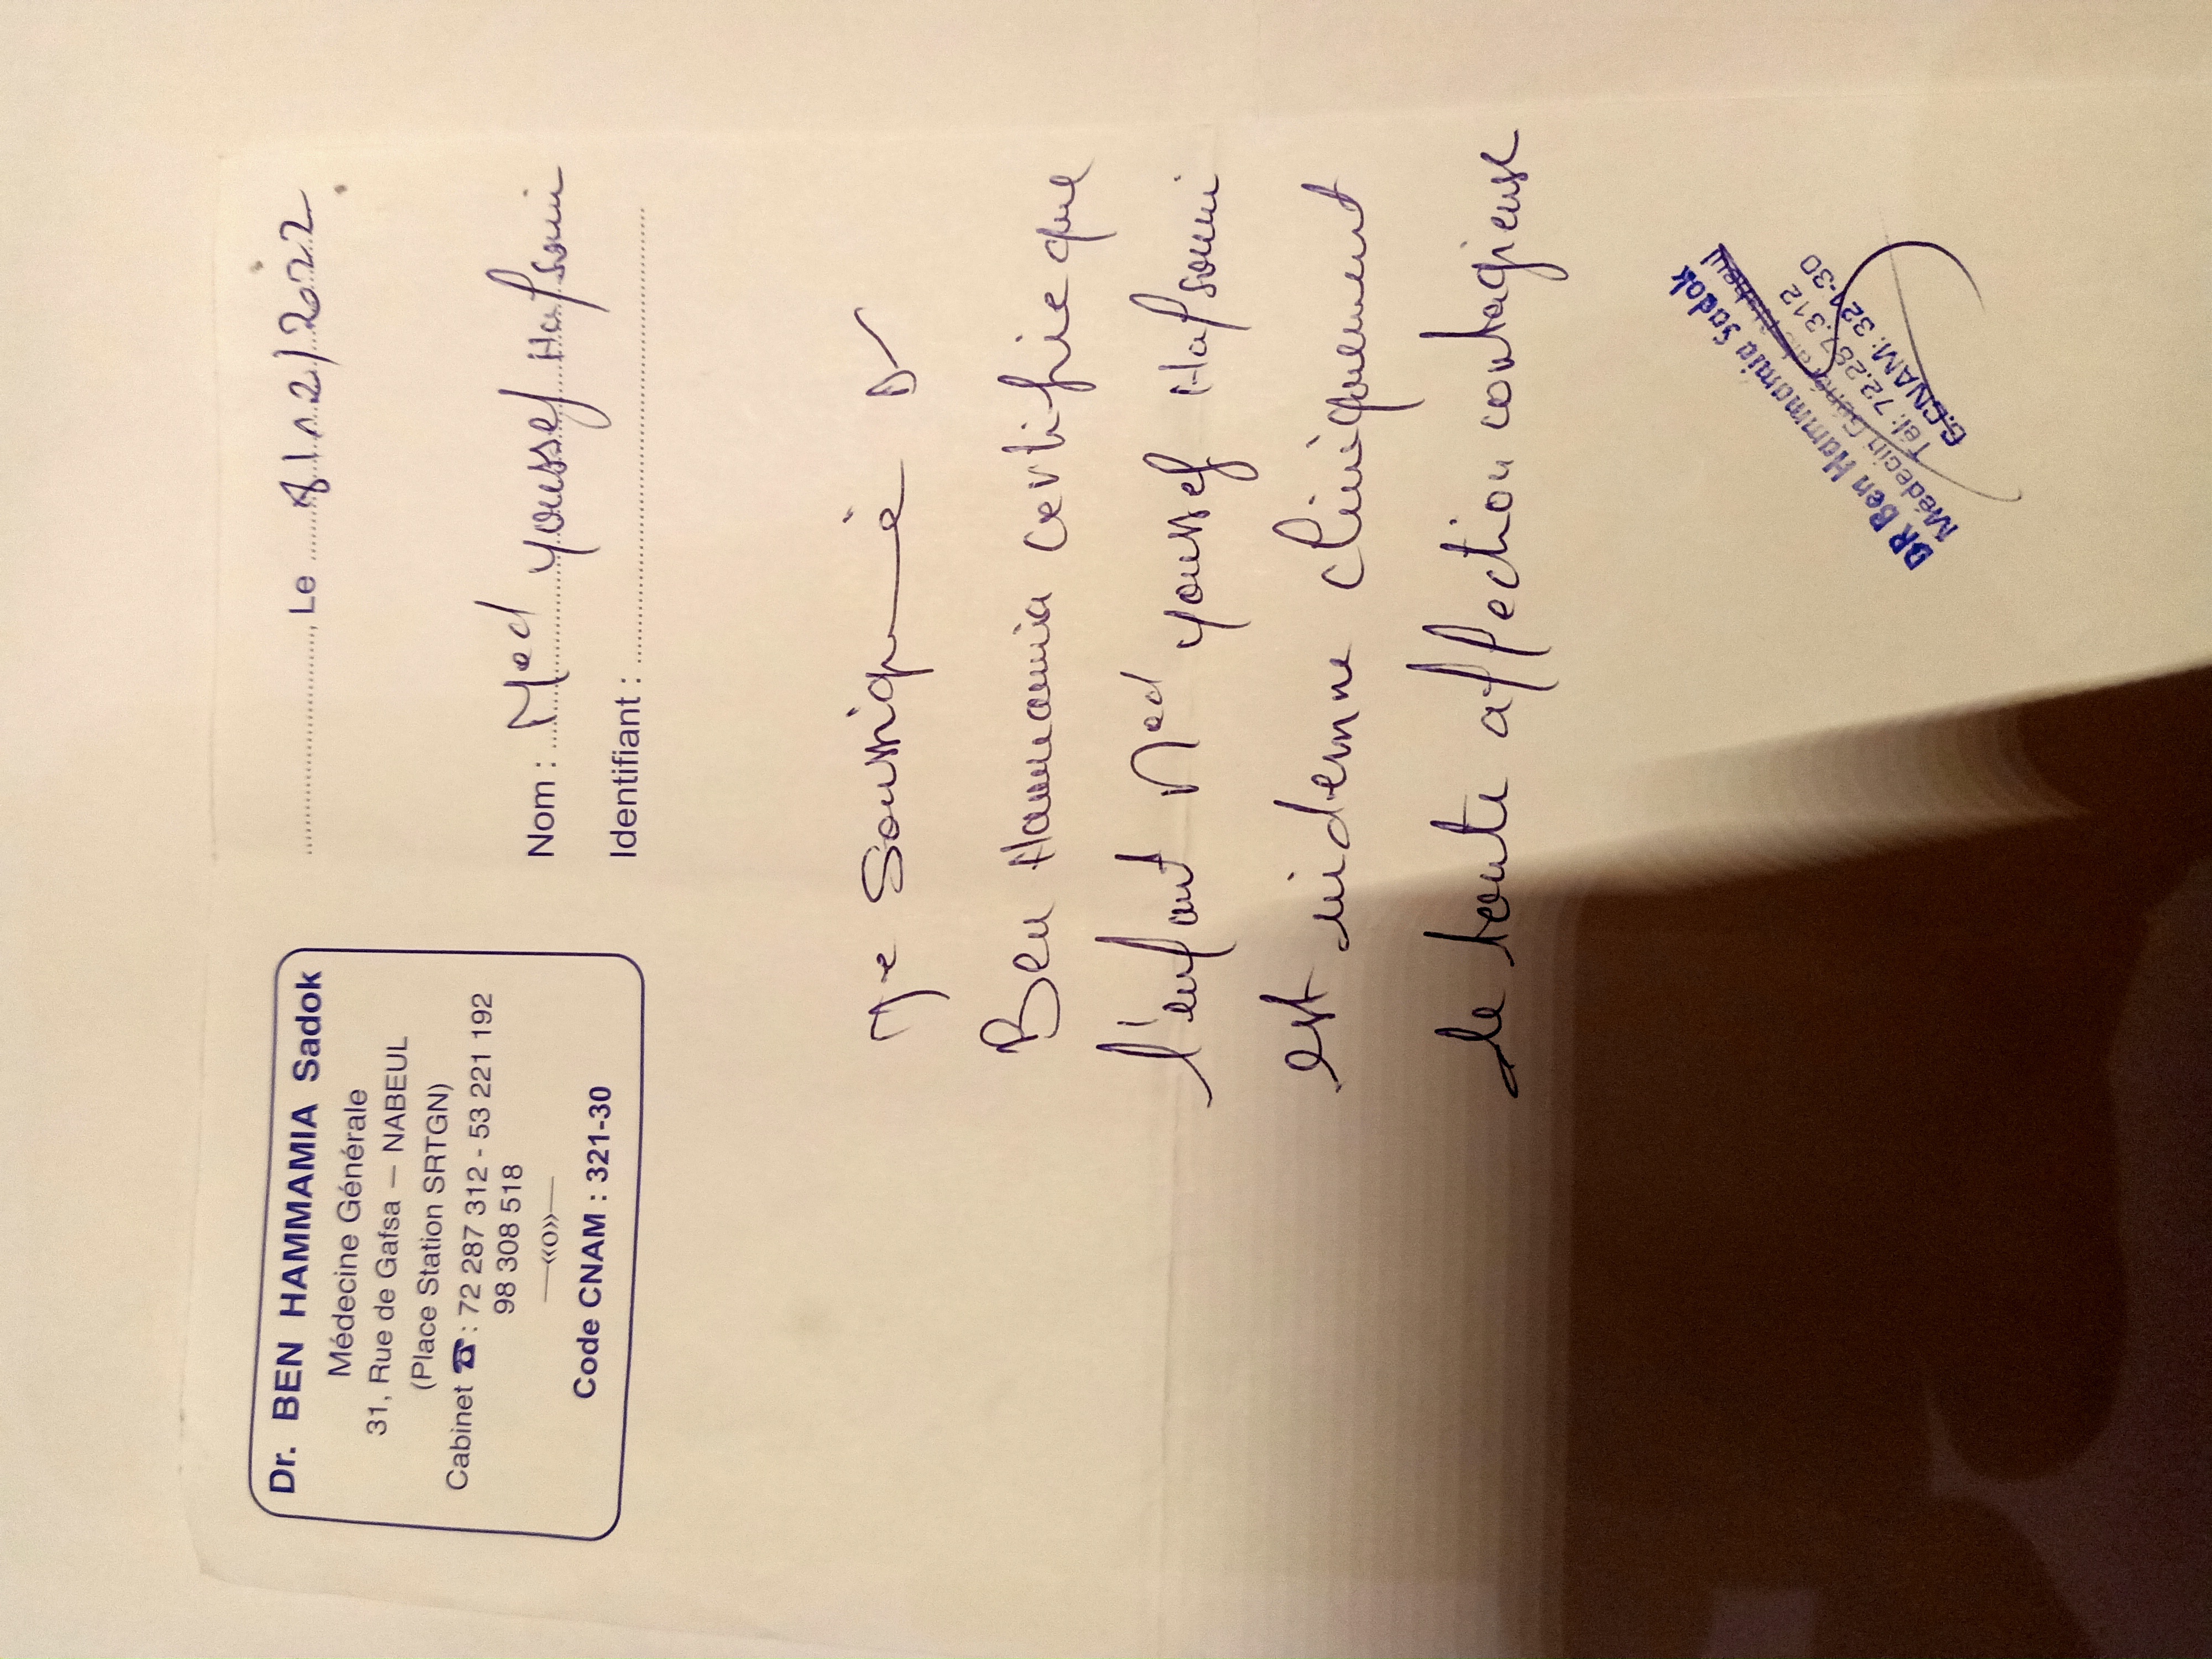 Dr. BEN HAMMAMIA Sadok
Médecine Générale
31, Rue de Gafsa – NABEUL
(Place Station SRTGN)
Cabinet ☎ : 72 287 312 - 53 221 192
98 308 518
—«o»—
Code CNAM : 321-30
, Le 8/12/2022
Nom : Med Youssef Hafsouni
Identifiant :
Je Soussigné Dr
Ben Hammamia certifie que
l'enfant Med Youssef Hafsouni
est indemne cliniquement
de toute affection contagieuse
DR Ben Hammamia Sadok
Médecin
Tél: 72.287.312
C.CNAM: 321-30